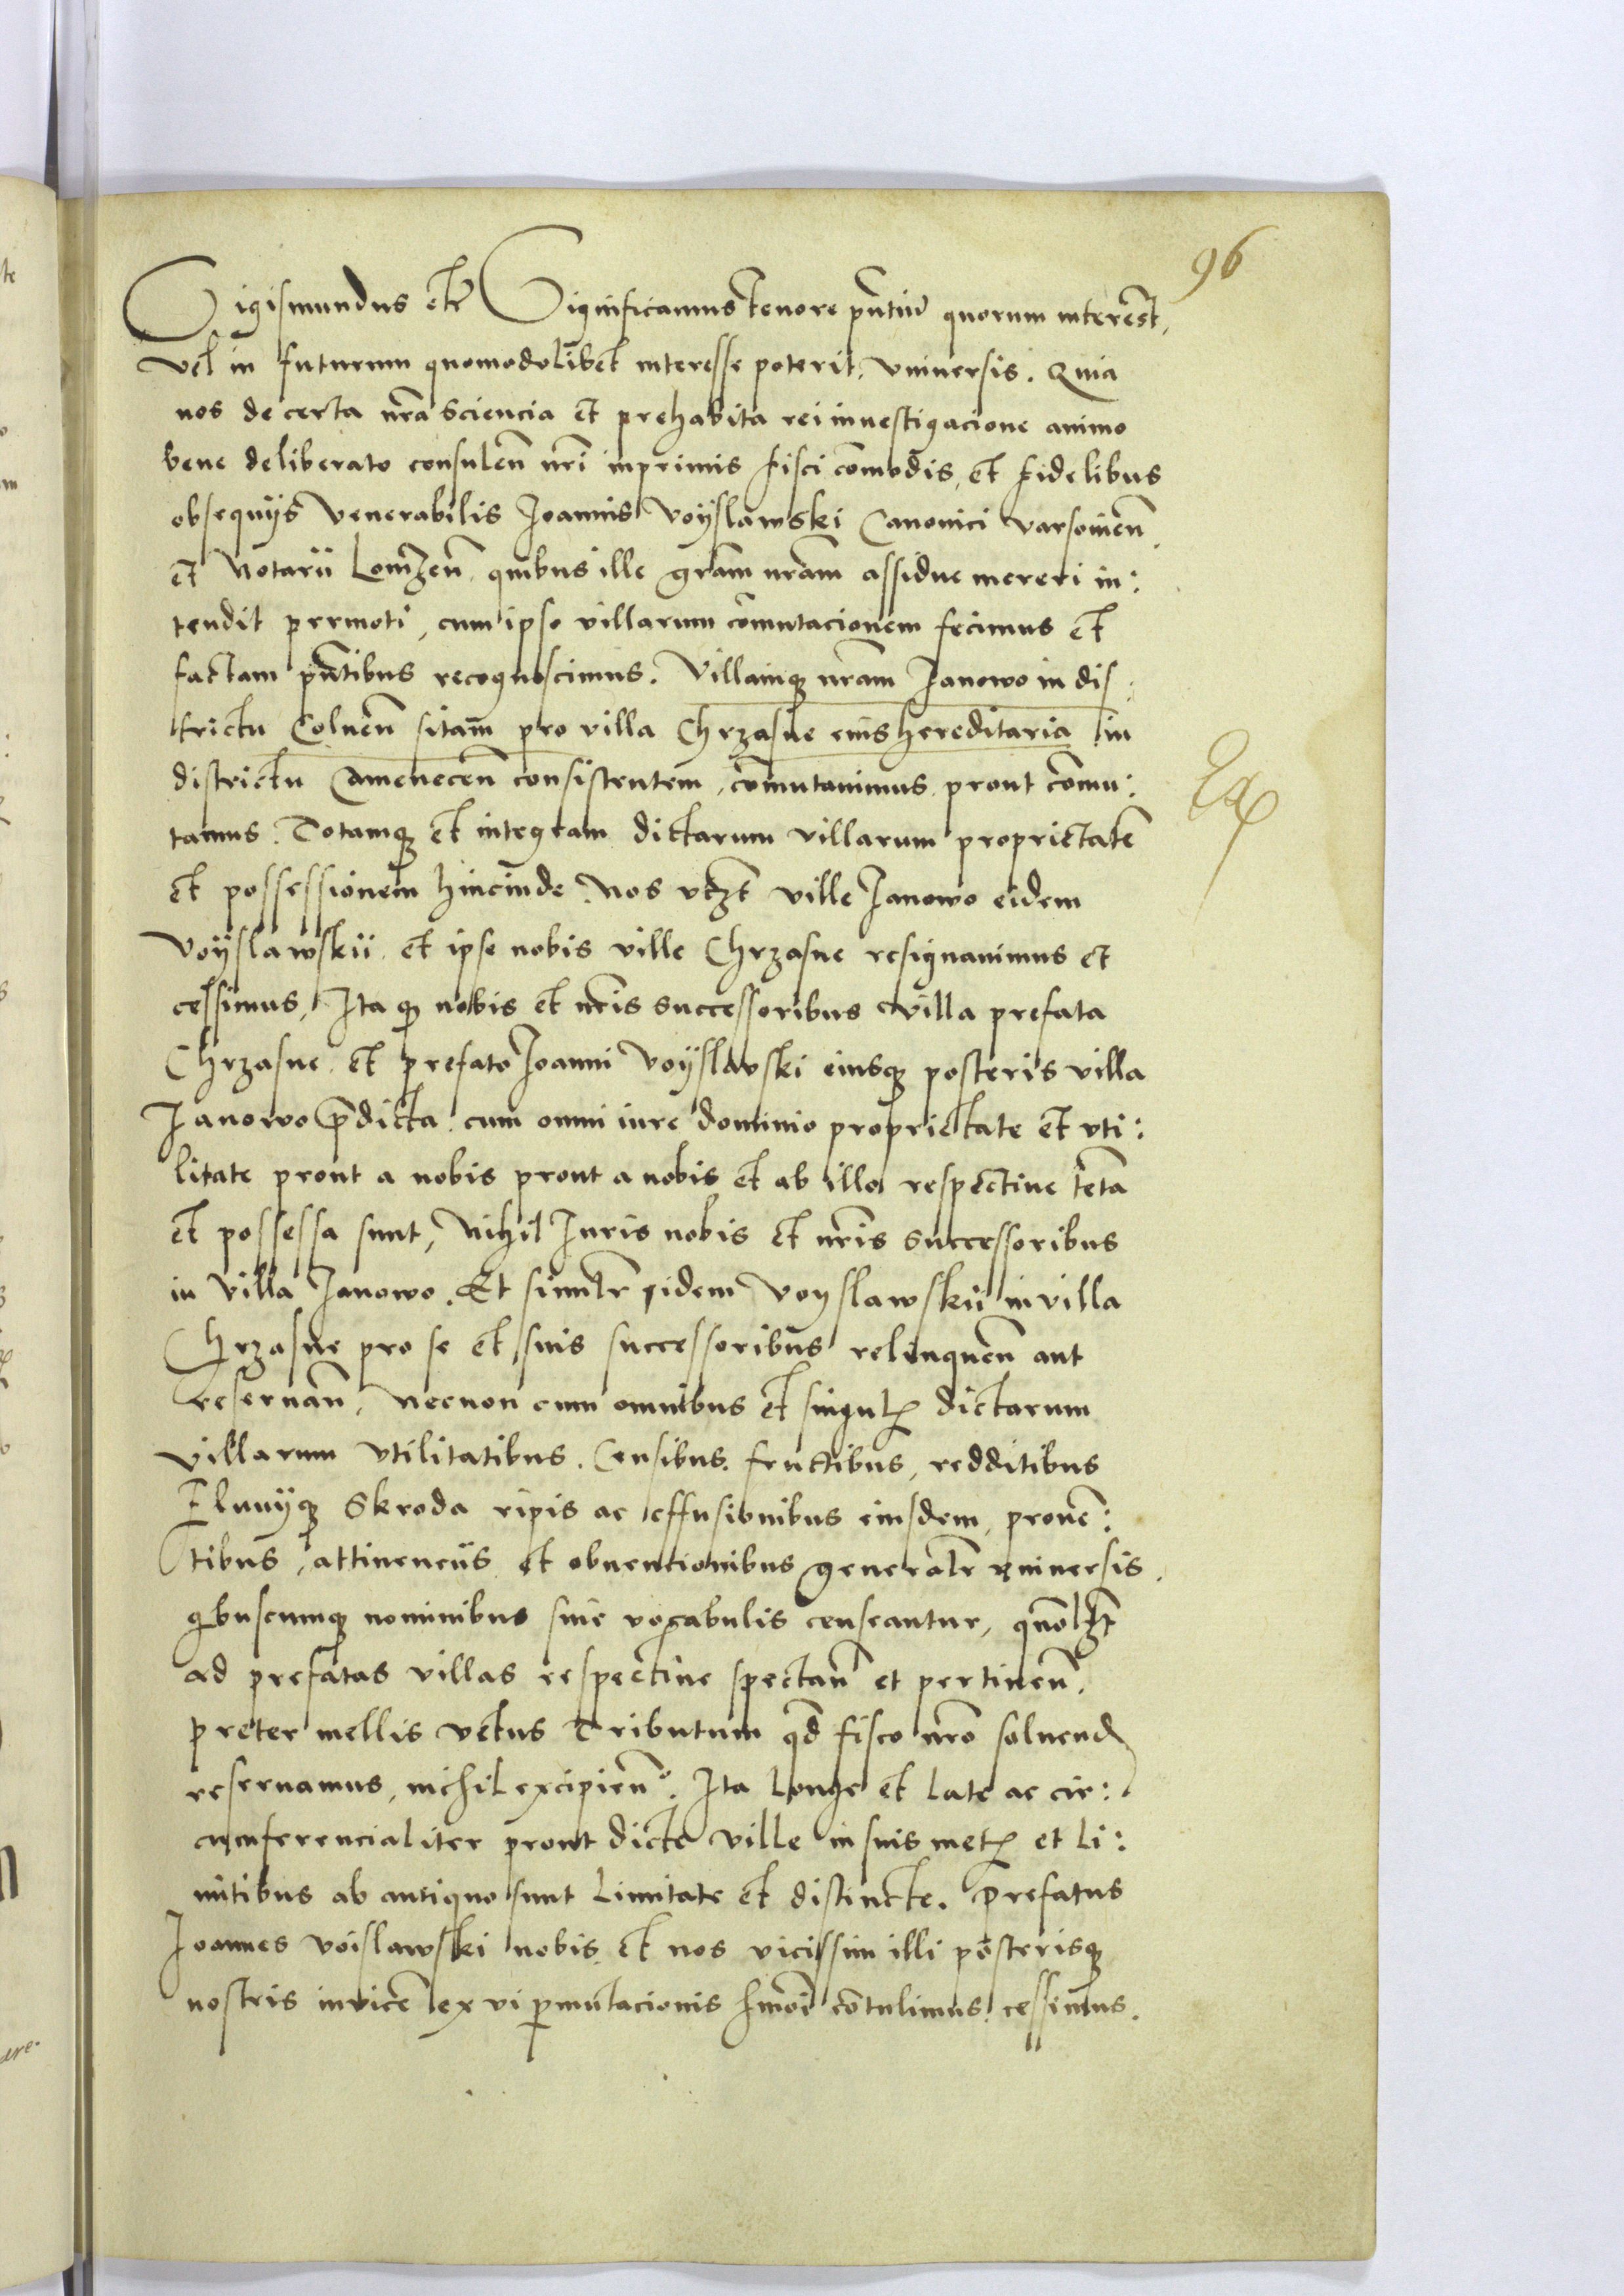 96
Sigismundus etc Significamus tenore pñtiũ quorum interest,
vel in futurum quomodolibet interesse poterit, vniuersis. Quia
nos de certa nr̃a sciencia et prehabita rei inuestigacione animo
bene deliberato consuleñ nr̃i inprimis fisci com̃odis, et fidelibus
obsequijs Venerabilis Joannis Voyslawski Canonici varsouieñ
et Notarii Lomzeñ quibus ille gr̃am nr̃am assidue mereri in:
tendit permoti, cum ipso villarum com̃utacionem fecimus et
factam pñtibus recognoscimus. Villamq nr̃am Janowo in dis:
trictu Colneñ sitam pro villa Chrzasne eius hereditaria in
districtu Camieneceñ consistentem, com̃utauimus prout com̃u:
tamus. Totamq et integram dictarum villarum proprietatẽ
et possessionem hincinde. Nos vtzt ville Janowo eidem
Voyslawskii et ipse nobis ville Chrzasne resignauimus et
cessimus, Ita q nobis et nr̃is successoribus villa prefata
Chrzasne et prefato Joanni Voyslavski eiusq posteris villa
Janowo p̃dicta cum omni iure dominio proprietate et vti:
litate prout a nobis prout a nobis et ab illo respectiue tẽta
et possessa sunt, Nihil Juris nobis et nr̃is successoribus
in villa Janowo. Et simil̃r eidem Voyslawskii in villa
Chrzasne pro se et suis successoribus relinqueñ aut
reseruañ, Necnon cum omnibus et singul̃ dictarum
villarum vtilitatibus. Censibus. fructibus, redditibus
Fluuijq Skroda ripis ac effusionibus eiusdem, prouẽ:
tibus, attinenciis et obuentionibus general̃r vniuersis.
qbuscunq nominibus siue vocabulis censeantur, quõlzt
ad prefatas villas respectiue spectañ et pertineñ.
preter mellis vetus Tributum qd̃ fisco nr̃o soluend
reseruamus, nichil excipieñ. Ita longe et late ac cir:
cumferencialiter prout dicte ville in suis met̃ et li:
mitibus ab antiquo sunt limitate et distincte. Prefatus
Joannes Voislawski nobis et nos vicissim illi posterisq
nostris inuicẽ ex vi p̃mutacionis hm̃õi cõtulimus cessimus.